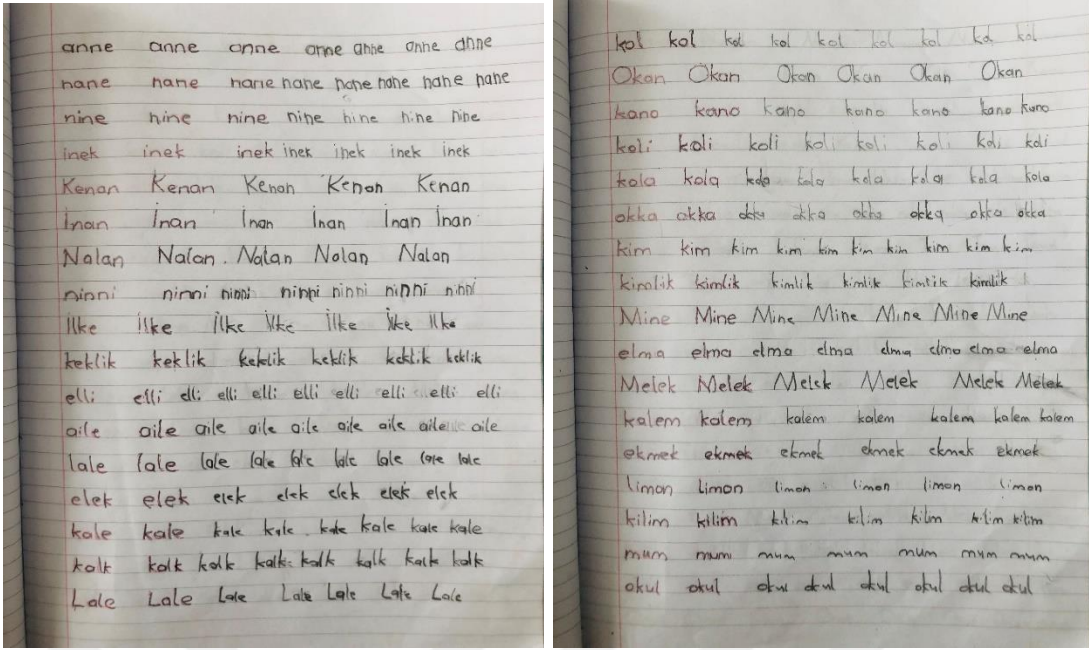 anne anne anne anne anne anne anne
nane nane nane nane nane nane nane nane
nine nine nine nine nine nine nine
inek inek inek inek inek inek inek
Kenan Kenan Kenan Kenan Kenan
İnan İnan İnan İnan İnan İnan
Nalan Nalan. Nalan Nalan Nalan
ninni ninni ninni ninni ninni ninni ninni
İlke İlke İlke İlke İlke İlke İlke
keklik keklik keklik keklik keklik keklik
elli elli elli elli elli elli elli elli elli elli
aile aile aile aile aile aile aile aile aile
lale lale lale lale lale lale lale lale lale
elek elek elek elek elek elek elek
kale kale kale kale kale kale kale kale
kalk kalk kalk kalk kalk kalk kalk kalk
Lale Lale Lale Lale Lale Lale Lale
kol kol kol kol kol kol kol kol kol
Okan Okan Okan Okan Okan Okan
kano kano kano kano kano kano kano
koli koli koli koli koli koli koli koli
kola kola kola kola kola kola kola kola
okka okka okka okka okka okka okka okka
kim kim kim kim kim kim kim kim kim kim
kimlik kimlik kimlik kimlik kimlik kimlik
Mine Mine Mine Mine Mine Mine Mine
elma elma elma elma elma elma elma elma
Melek Melek Melek Melek Melek Melek
kalem kalem kalem kalem kalem kalem kalem
ekmek ekmek ekmek ekmek ekmek ekmek
limon limon limon limon limon limon
kilim kilim kilim kilim kilim kilim kilim
mum mum mum mum mum mum mum
okul okul okul okul okul okul okul okul